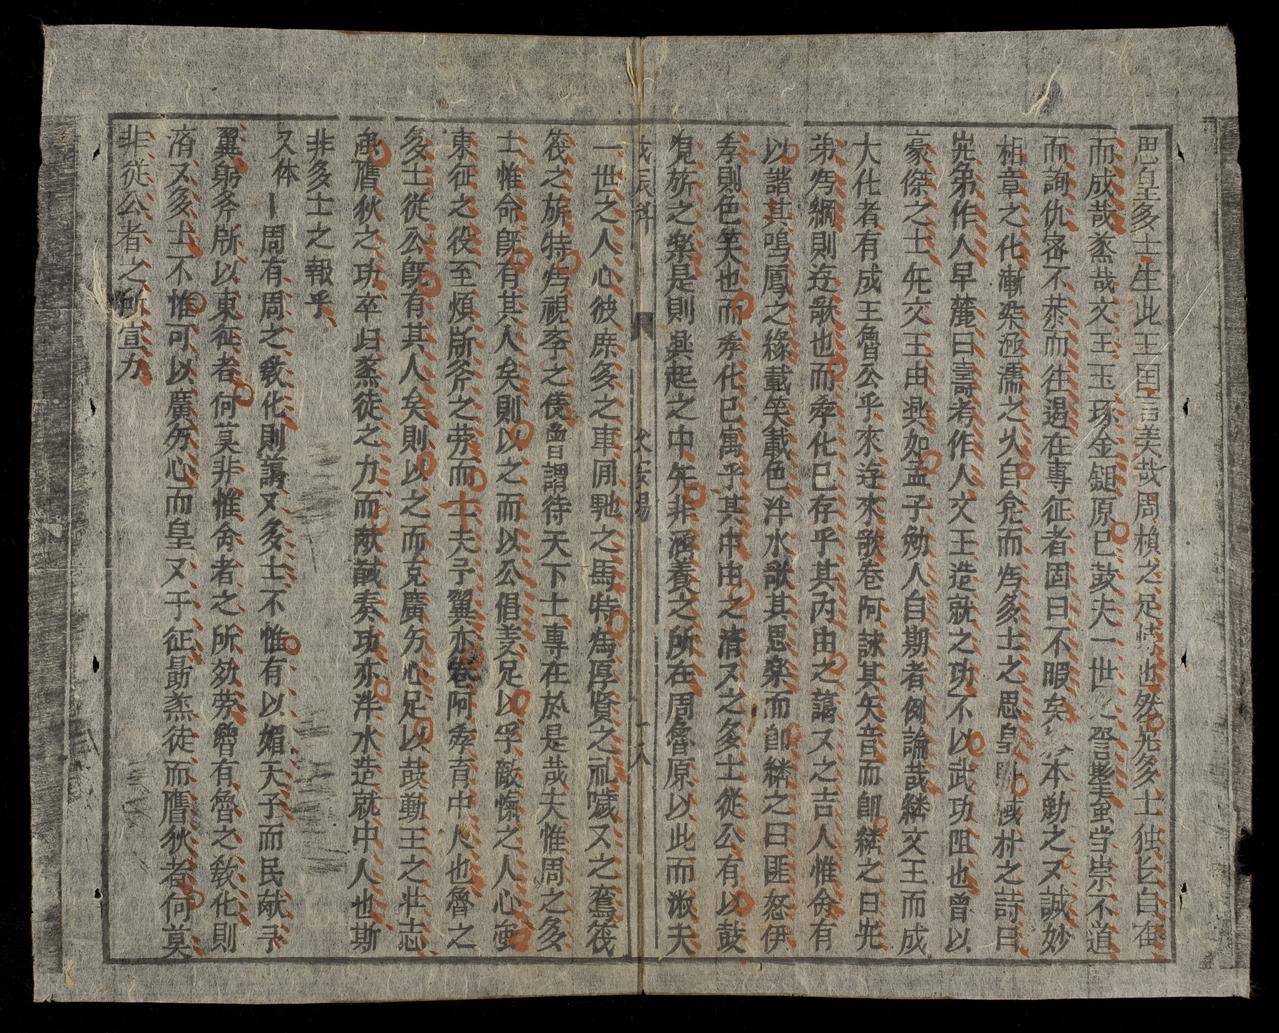 思皇多士生此王国言美哉周楨之足恃也然先多士独
而成哉烝哉文王玉琢金鎚原已鼓夫一世崇不道
而詢仇密不恭而往遏在專征者固曰不暇矣本勅之又誠妙
相章之化漸染涵濡之久自免而為多士之思皇棫朴之詩曰
豈弟作人早麓曰壽考作人文王造就之功不以武功阻也曾以
豪傑之士先文王由興如孟子勉人自期者例論哉繼文王而成
大化者有成王魯公乎來遊來歌卷阿詠其矢音而即繼之曰豈
弟為綱則遊歌也而孝化已存乎其內由之藹又之吉人惟命有
以諧其鳴鳳之緣載笑載色泮水歌其思楽而即繼之曰匪怒伊
孝則色笑也而孝化已寓乎其中由之濟又之多士從公有以鼓
鳧旂之楽是則興起之中年非涵養之所在周魯原以此而淑夫
戊辰科 文安場 十八
一世之人心彼庶多之車閒馳之馬特為厚賢之礼噦又之鸞筏
筏之旂特為視孝之使曾謂待天下士專在於是哉夫惟周之多
士惟命旣有其人矣則以之而以公倡妄足以孚敵愾之人心
東征之役至煩斨斧之労而士夫予翼亦卷阿孝育中人也魯之
多士從公旣有其人矣則以之而克廣為心足以鼓動王之壮志
膺狄之功卒归烝徒之力而献馘奏功亦泮水造就中人也斯
非多士之報乎
又体 周有周之教化則藹又多士不惟有以媚天子而民献予
翼斨斧所以東征者何莫非惟命者之所効劳魯有魯之教化則
濟又多士不惟可以廣為心而皇又于征烝徒而膺狄者何莫
非従公者之所宣力